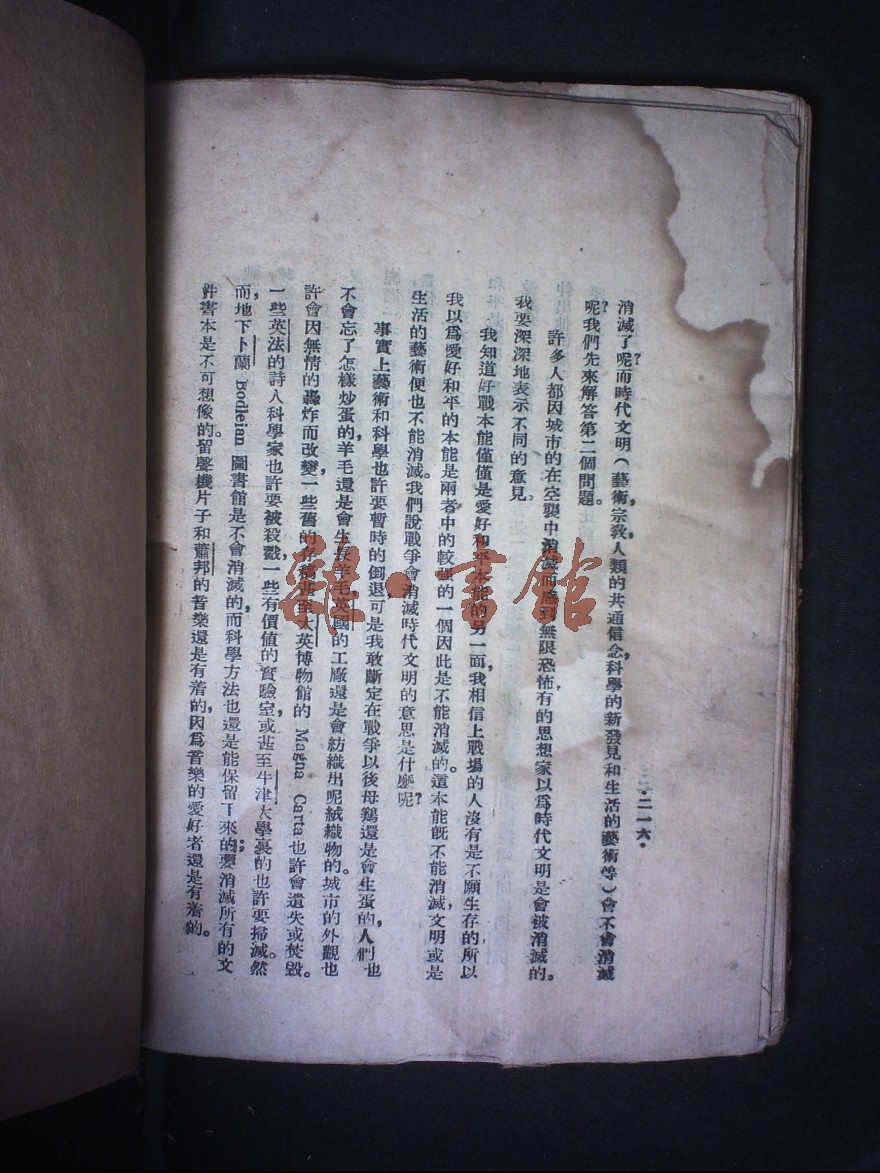 二・二一六・
消滅了呢？而時代文明（藝術，宗教，人類的共通信念，科學的新發見和生活的藝術等）會不會消滅
呢？我們先來解答第二個問題。
許多人都因城市的在空襲中消滅而感到無限恐怖，有的思想家以爲時代文明是會被消滅的。
我要深深地表示不同的意見。
我知道好戰本能僅僅是愛好和平本能的另一面，我相信上戰場的人沒有是不願生存的，所以
我以爲愛好和平的本能是兩者中的較强的一個，因此是不能消滅的。這本能旣不能消滅，文明或是
生活的藝術便也不能消滅。我們說戰爭會消滅時代文明的意思是什麼呢？
事實上藝術和科學也許要暫時的倒退，可是我敢斷定在戰爭以後，母鷄還是會生蛋的，人們也
不會忘了怎樣炒蛋的，羊毛還是會生長，羊毛，英國的工廠還是會紡織出呢絨織物的。城市的外觀也
許會因無情的轟炸而改變，一些舊的存稿甚至大英博物館的 Magna Carta 也許會遺失或焚毀。
一些英法的詩人科學家也許要被殺戳，一些有價值的實驗室或甚至牛津大學裏的也許要掃滅。然
而，地下卜蘭 Bodleian 圖書館是不會消滅的，而科學方法也還是能保留下來的；要消滅所有的文
件書本是不可想像的。留聲機片子和蕭邦的音樂還是有着的，因爲音樂的愛好者還是有着的。
雜・書館